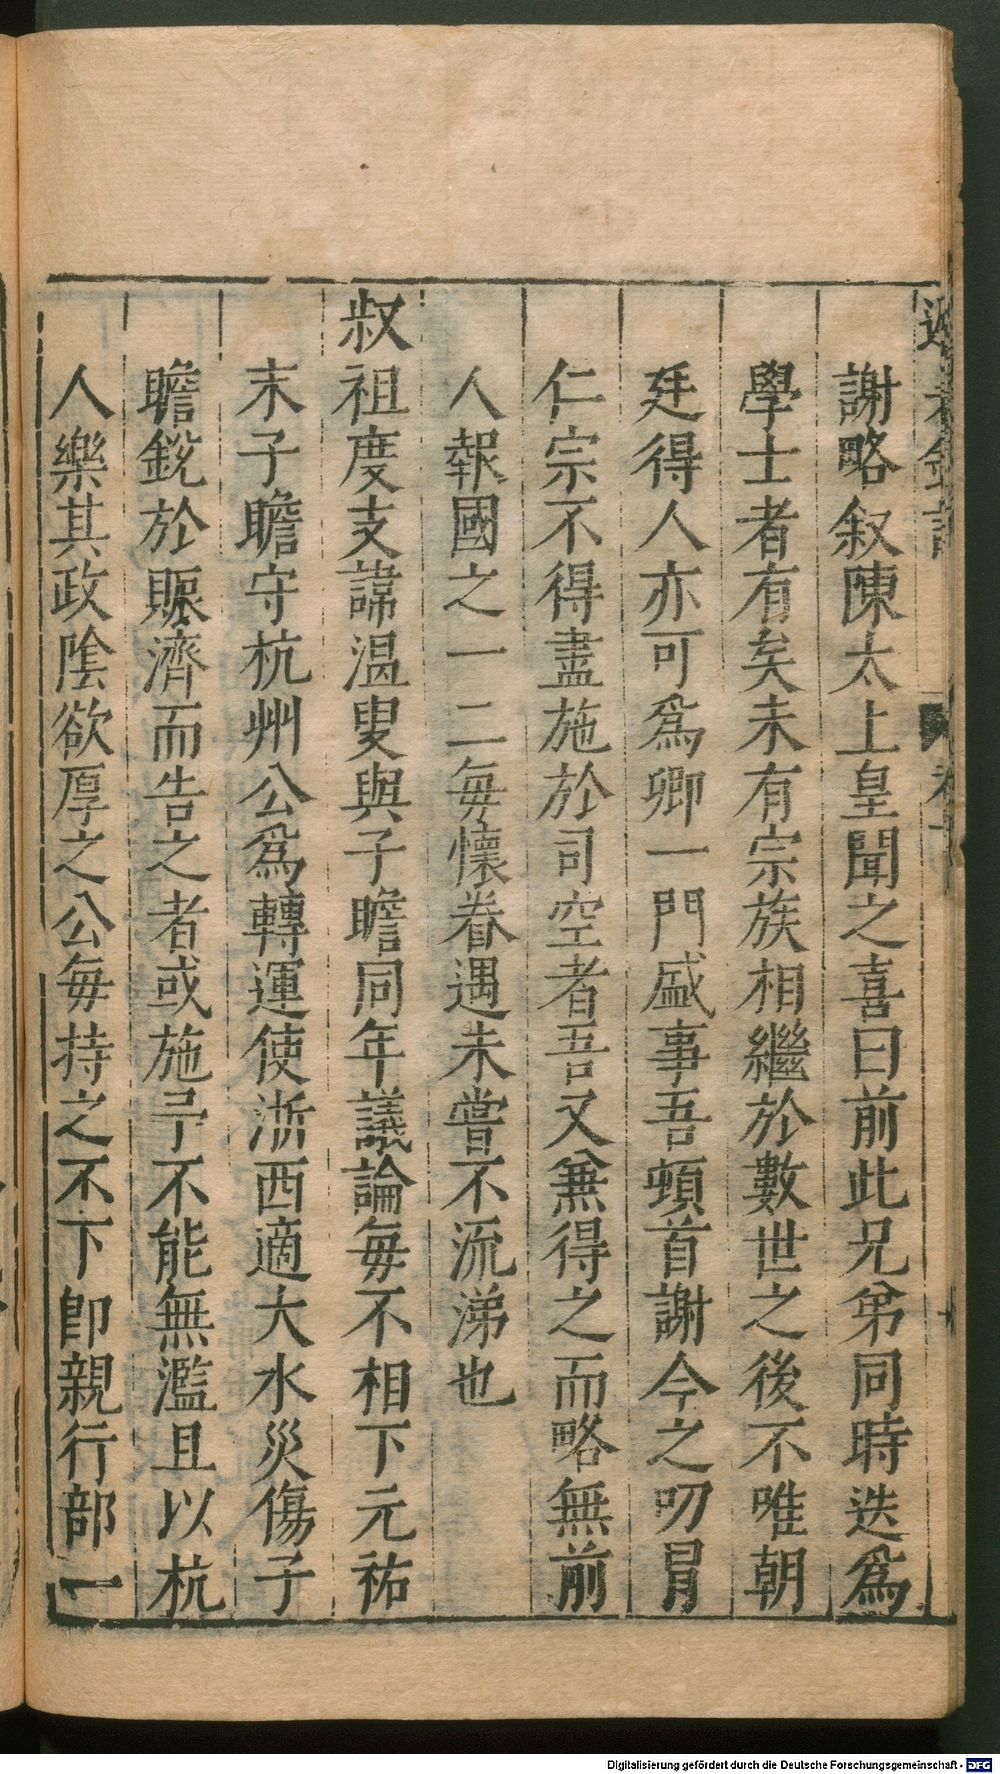 謝略叙陳太上皇聞之喜曰前此兄弟同時迭爲
學士者有矣未有宗族相繼於數世之後不唯朝
廷得人亦可爲卿一門盛事吾頓首謝今之叨冒
仁宗不得盡施於司空者吾又兼得之而略無前
人報國之一二每懷眷遇未嘗不流涕也
叔祖度支諱温叟與子瞻同年議論每不相下元祐
末子瞻守杭州公爲轉運使浙西適大水災傷子
瞻鋭於賑濟而告之者或施予不能無濫且以杭
人樂其政陰欲厚之公每持之不下即親行部一
Digitalisierung gefördert durch die Deutsche Forschungsgemeinschaft - DFG